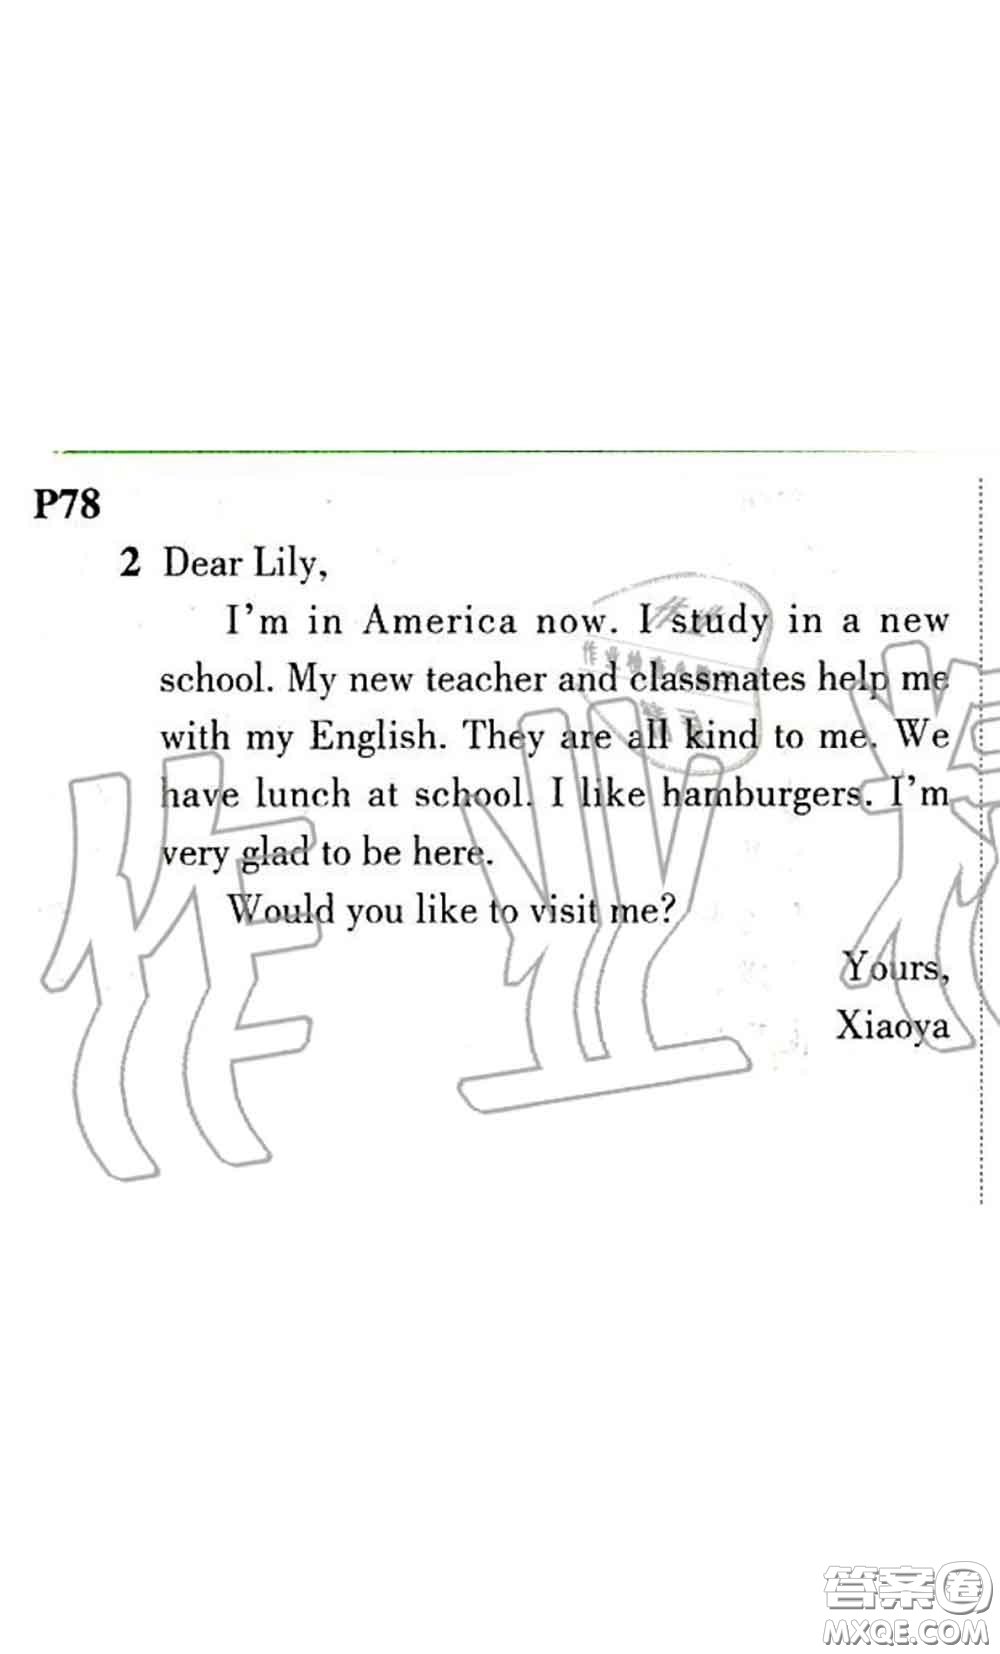 P78
2 Dear Lily,
I'm in America now. I study in a new
school. My new teacher and classmates help me
with my English. They are all kind to me. We
have lunch at school. I like hamburgers. I'm
very glad to be here.
Would you like to visit me?
Yours,
Xiaoya
作业
作业检查小助手
作业
答案圈
MXQE.COM